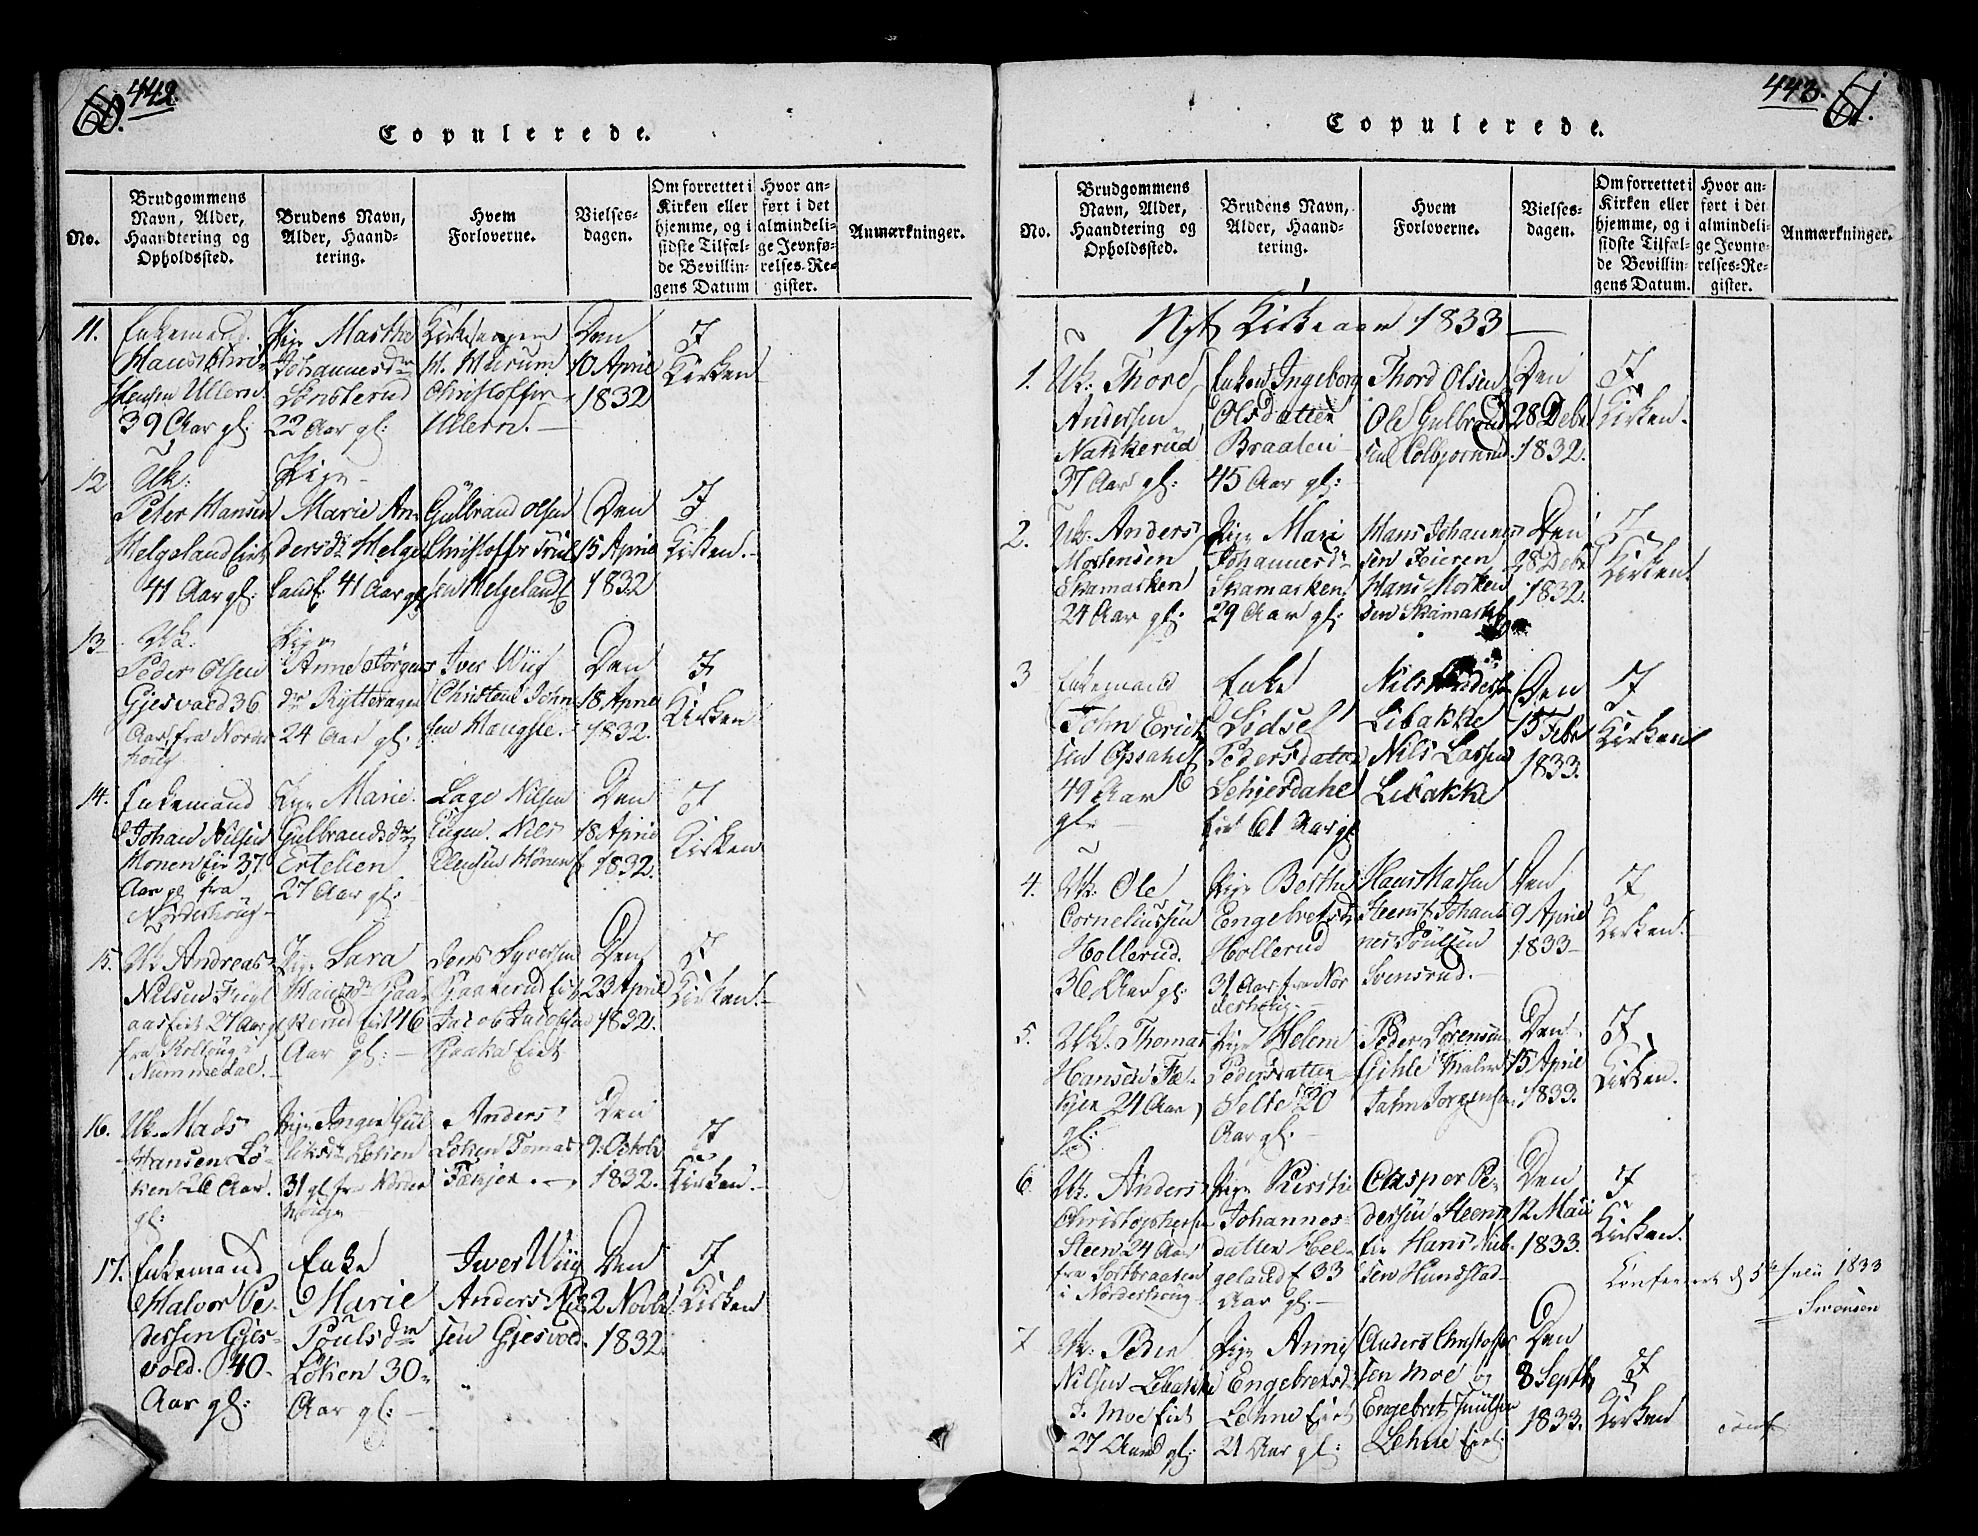 60. 442
Copulerede.
No.
Brudgommens
Navn, Alder,
Haandtering og
Opholdssted.
Brudens Navn,
Alder, Haand-
tering.
Hvem
Forloverne.
Vielses-
dagen.
Om forrettet i
Kirken eller
hjemme, og i
sidste Tilfæl-
de Bevillin-
gens Datum
Hvor an-
ført i det
almindeli-
ge Jevnfø-
relses-Re-
gister.
Anmærkninger.
11.
Enkemand
Hans Chri-
stensen Ullern.
39 Aar gl:
Pige Marthe
Johannesdr
Lønsterud
22 Aar gl:
Kirkesanger
H. Murum
Christoffer
Ullern. —
Den
10 April
1832
I
Kirken
12
Uk:
Peter Hansen
Helgeland Eiet
41 Aar gl:
Pige
Marie An-
dersdr Helge
landf: 41 Aar gl
Gulbrand Olsen
Christoffr
sen Helgeland
Den
15 April
1832
I
Kirken. —
13
Uk.
Peder Olsen
Gjesvold 36
Aar fra Norder
houg
Pige
Anne Jørgens
dr Rytteragen
24 Aar gl.
Iver Wiig
Christen John
sen Haugsle. —
Den
18 April
1832.
I
Kirken
14.
Enkemand
Johan Nilsen
Monen Eie 37
Aar gl fra
Norderhoug
Pige Marie
Gulbrandsdr
Ertelien
27 Aar gl:
Lage Nilsen
Nils
Olensen Monen
Den
18 April
1832.
I
Kirken
15.
Uk Andreas
Nilsen Fugl
aas eiet 27 Aar gl
fra Rolloug i
Nummedal. —
Pige Sara
Hansdr Pjaa
kerud Eiet 46
Aar gl: —
Jens Syversen
Pjaakerud Eiet
Jacob Jacobsen
Pjaaka Eiet
Den
23 April
1832.
I
Kirken. —
16.
Uk. Mads
Hansen Lø-
ken 26 Aar.
gl:
Pige Inger Gul
liksdr Løken
31 gl fra Norder
houg
Anders
Løken Tomas
Fænjer. —
Den
9. Octobr
1832.
I
Kirken. —
17.
Enkemand
Halvor Pe-
dersen Gjes-
vold. 40
Aar gl:
Enke
Marie
Poulsdr
Løken 30
Aar gl: —
Iwer Wiig
Anders Niel
sen Gjesvold
Den
2 Novbr
1832.
I
Kirken
443. 61.
Copulerede.
No.
Brudgommens
Navn, Alder,
Haandtering og
Opholdssted.
Brudens Navn,
Alder, Haand-
tering.
Hvem
Forloverne.
Vielses-
dagen.
Om forrettet i
Kirken eller
hjemme, og i
sidste Tilfæl-
de Bevillin-
gens Datum.
Hvor an-
ført i det
almindeli-
ge Jevnfø-
relses-Re-
gister.
Anmærkninger.
Nyt Kirkeaar 1833 —
1.
Uk: Thore
Andersen
Nakkerud
37 Aar gl:
Enken Ingeborg
Olsdatter
Braaten
45 Aar gl:
Thord Olsen
Ole Gulbrand
sen Colbjørnrud
Den
28 Debr
1832.
I
Kirken.
2.
Uk: Anders
Mortensen
Skamarken
24 Aar gl:
Pige Mari
Johannesdr
Skamarken
29 Aar gl:
Hans Johannes
sen Feieren
Hans Morten
sen Skamarken
Den
28 Debr
1832.
I
Kirken.
3
Enkemand
John Erick
sen Opsahl
49 Aar
gl:
Enke
Lidsel
Pedersdatter
Schjerdahl
Eie 61 Aar gl
Nils Andersen
Libakke
Nils Larsen
Libakke
Den
15 Febr
1833.
I
Kirken
4.
Uk: Ole
Corneliussen
Hollerud.
36 Aar gl:
Pige Berthe
Engebretsdr
Hollerud
31 Aar fra Nor
derhoug. —
Hans Madsen
Steens Johan
nes Poulsen
Svensrud. —
Den
9 April
1833 —
I
Kirken. —
5.
Uk: Thomas
Hansen Fæ-
njer 24 Aar
gl:
Pige Helene
Pedersdatter
Selte 20
Aar gl: —
Peder Sørensen
Gihle
Jahn Jørgensen
Den
15 April
1833.
I
Kirken.
6
Uk. Anders
Christophersen
Steen 24 Aar
fra Solbraaten
i Norderhoug
Pige Kirsti
Johannes-
datter Hel-
gelandf 33
Aar gl: —
Casper Pe-
dersen Steens
Eie Hans
sen Hundstad
Den
12 Maii
1833.
I
Kirken.
Confereret d 5te Juni 1833
Swensen
7
Uk: Peder
Nilsen Libakke
p. Moe Eiet
27 Aar gl:
Pige Anne
Engebretsdr
Lehne Eiet
21 Aar gl:
Anders Christopher
sen Moe og
Engebret Juulsen
Lehne Eiet
Den
8 Septb
1833.
I
Kirken
conf